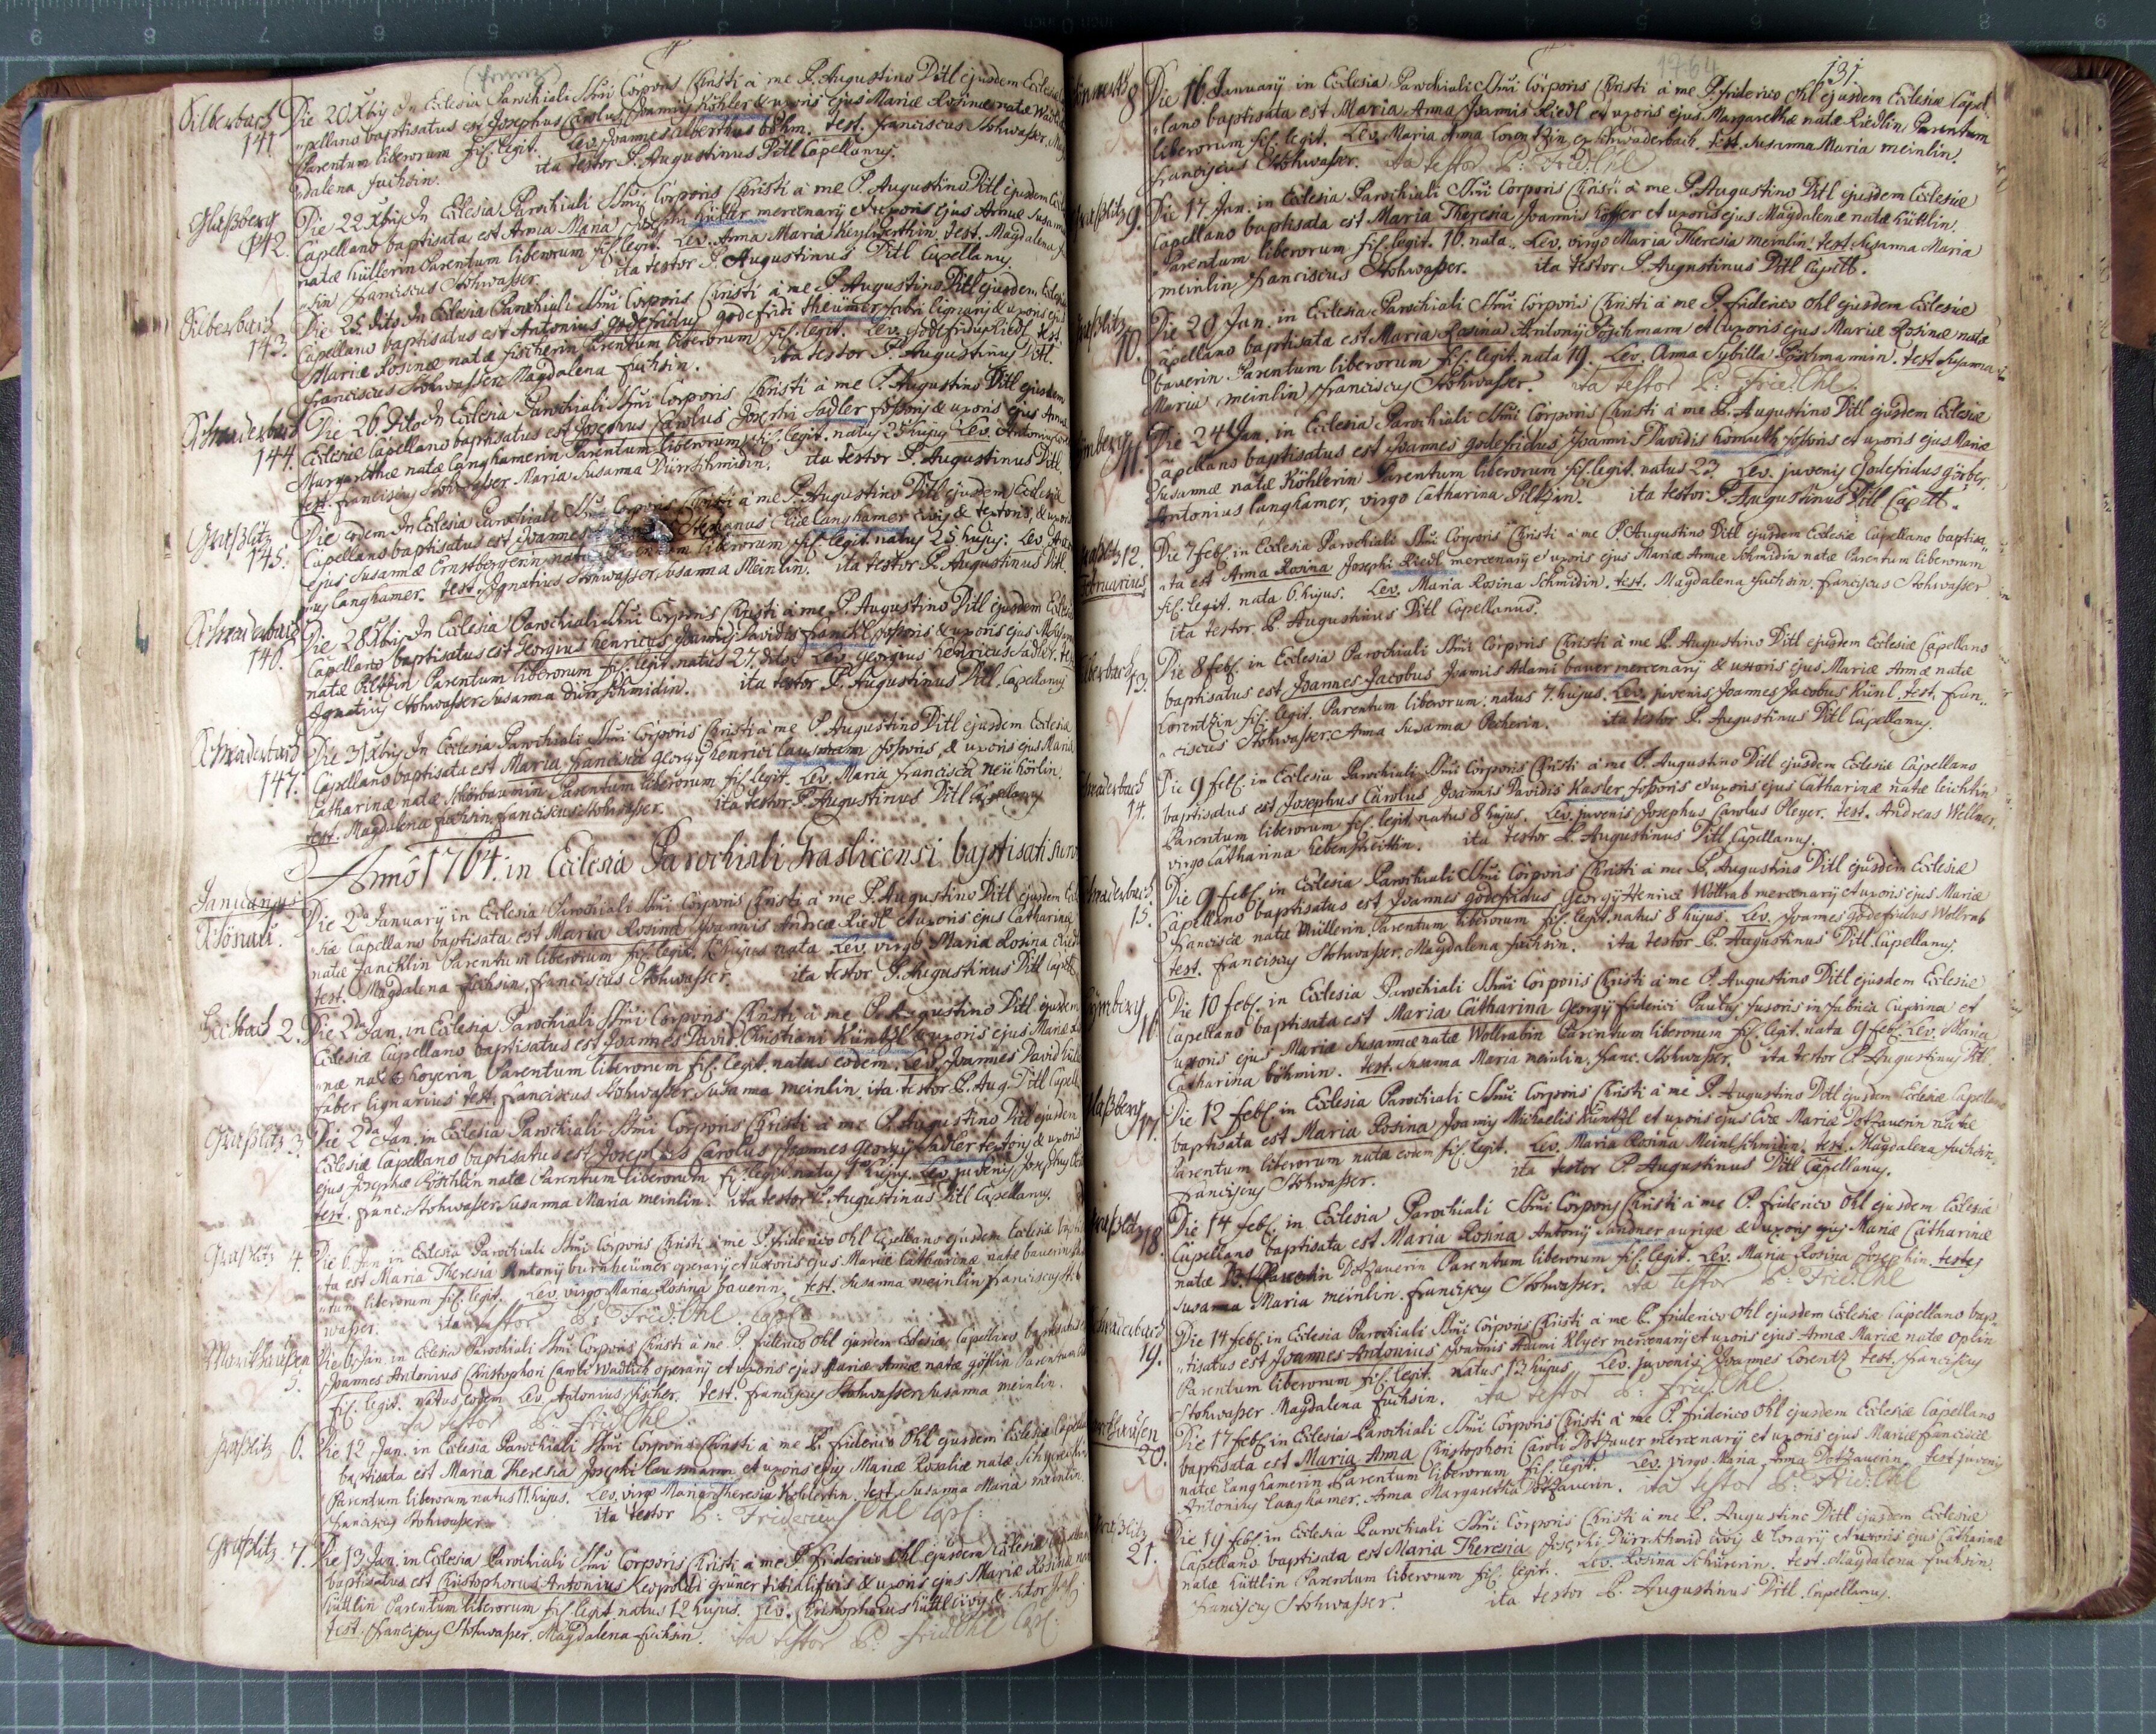 (Franz)
Silberbach
141
Die 20 Xbris In Ecclesia Parochiali SSmi Corporis Christi à me P. Augustino Ditl ejusdem Ecclesiæ
pellano baptisatus est Josephus Carolus Joannis Köhler & uxoris ejus Mariæ Rosinæ natæ
Parentum liberorum fil. legit. Lev. Joannes Alberthus Böhm. test. Franciscus Stohwasser, Mag
dalena Fuchsin. ita testor P. Augustinus Ditl Capellanus.
Glasberg
142.
Die 22 Xbris In Ecclesia Parochiali SSmi Corporis Christi à me P. Augustino Ditl ejusdem
Capellano baptisata est Anna Maria mercenarij et uxoris ejus Annæ
natæ Hüllerin Parentum liberorum fil. legit. Lev. Anna Maria test. Magdalena
Franciscus Stohwasser. ita testor P. Augustinus Ditl Capellanus
Silberbach
143.
Die 25 dito In Ecclesia Parochiali SSmi Corporis Christi à me P. Augustino Ditl ejusdem
Capellano baptisatus est Antonius Godefridus Godefridi Theümer fabri lignarij & uxoris ejus
Mariæ Rosinæ natæ Fischerin Parentum liberorum fil. legit. Lev. test.
Franciscus Stohwasser Magdalena Fuchsin. ita testor P. Augustinus Ditl
Schwaderbach
144.
Die 26. dito In Ecclesia Parochiali SSmi Corporis Christi à me P. Augustino Ditl ejusdem
Ecclesiæ Capellano baptisatus est Josephus Carolus Josephi Sadler fossoris & uxoris ejus Annæ
Margarethæ natæ Langhamerin Parentum liberorum fil. legit. natus 25 hujus Lev. Antonius
test. Franciscus Stohwasser Maria Susanna Dürrschmidin. ita testor P. Augustinus Ditl
Grasslitz
145.
Die eodem In Ecclesia Parochiali SSmi Corporis Christi à me P. Augustino Ditl ejusdem Ecclesiæ
Capellano baptisatus est Joannes Stephanus Eliæ Langhamer civis & textoris, & uxoris
ejus Susannæ Ernstbergerin natæ Parentum liberorum fil. legit. natus 25 hujus. Lev.
Langhamer. test. Ignatius Stohwasser, Susanna Meinlin. ita testor P. Augustinus Ditl.
Schwaderbach
146.
Die 28 Xbris In Ecclesia Parochiali SSmi Corporis Christi à me P. Augustino Ditl ejusdem
Capellano baptisatus est Georgius Henricus Joannis Davidis fossoris & uxoris ejus
natæ Piltzin Parentum liberorum fil. legit. natus 27. dito. Lev. Georgius Henricus Sadler.
Ignatius Stohwasser Susanna Dürrschmidin. ita testor P. Augustinus Ditl, Capellanus
Schwaderbach
147.
Die 31 Xbris In Ecclesia Parochiali SSmi Corporis Christi à me P. Augustino Ditl ejusdem Ecclesiæ
Capellano baptisata est Maria Francisca Georgij Henrici Lausmam fossoris, & uxoris ejus Mariæ
Catharinæ natæ Parentum liberorum fil. legit. Lev. Maria Francisca
test. Magdalena Fuchsin, Franciscus Stohwasser. ita testor P. Augustinus Ditl Capellanus
Anno 1764. in Ecclesia Parochiali Graslicensi baptisati sunt
Januarius
Schönau.
Die 2da January in Ecclesia Parochiali SSmi Corporis Christi à me P. Augustino Ditl ejusdem
siæ Capellano baptisata est Maria Rosina Joannis Andreæ Riedl et uxoris ejus Catharinæ
natæ Parentum liberorum fil. legit. hujus nata Lev. virgo Maria Rosina
test. Magdalena Fuchsin, Franciscus Stohwasser. ita testor P. Augustinus Ditl Capell
2.
Die 2da Jan. in Ecclesia Parochiali SSmi Corporis Christi à me P. Augustino Ditl ejusdem
Ecclesiæ Capellano baptisatus est Joannes David Christiani Küntzl & uxoris ejus Mariæ
næ natæ Hoyerin Parentum liberorum fil. legit. natus eodem. Lev. Joannes David
faber lignarius test. Franciscus Stohwasser Susanna Meinlin. ita testor P. Aug. Ditl Capell
Grasslitz 3.
Die 2da Jan. in Ecclesia Parochiali SSmi Corporis Christi à me P. Augustino Ditl ejusdem
Ecclesiæ Capellano baptisatus est Josephus Carolus Joannes Georgij Sadler textoris & uxoris
ejus Josephæ natæ Parentum liberorum fil. legit. natus hujus. Lev. juvenis Josephus
test. Franc. Stohwasser Susanna Maria Meinlin. ita testor P. Augustinus Ditl Capellanus
Grasslitz 4.
Die 6. Jan. in Ecclesia Parochiali SSmi Corporis Christi à me P. Friderico Ohl Capellano ejusdem Ecclesiæ
ta est Maria Theresia Antonij Burnheümer operarij et uxoris ejus Mariæ Catharinæ natæ Bauerin
tum liberorum fil. legit. Lev. virgo Maria Rosina Bauerin, test. Susanna Meinlin Franciscus
wasser. ita testor P: Frid: Ohl Capl:
5.
Die 6. Jan. in Ecclesia Parochiali SSmi Corporis Christi à me P. Friderico Ohl ejusdem Ecclesiæ Capellano baptisatus
Joannes Antonius Christophori Caroli operarij et uxoris ejus Mariæ Annæ natæ Parentum
fil. legit. natus eodem Lev. Antonius Fischer. test. Franciscus Stohwasser, Susanna Meinlin.
ita testor P: Frid: Ohl
Grasslitz 6.
Die 12 Jan. in Ecclesia Parochiali SSmi Corporis Christi à me P. Friderico Ohl ejusdem Ecclesiæ
baptisata est Maria Theresia Josephi Lausmann et uxoris ejus Mariæ Rosaliæ natæ
Parentum liberorum natus 11. hujus. Lev. virgo Maria Theresia test. Susanna Maria Meinlin.
Franciscus Stohwasser. ita testor P: Fridericus Ohl Capl:
Grasslitz 7.
Die 13 Jan. in Ecclesia Parochiali SSmi Corporis Christi à me P. Friderico Ohl ejusdem Ecclesiæ
baptisatus est Christophorus Antonius Leopoldi Grüner & uxoris ejus Mariæ Rosinæ
Hüttlin Parentum liberorum fil. legit. natus 12 hujus. Lev. Christophorus Hüttl civis &
test. Franciscus Stohwasser, Magdalena Fuchsin. ita testor P: Frid: Ohl Capl:
1764
131.
8
Die 16. January in Ecclesia Parochiali SSmi Corporis Christi à me P. Friderico Ohl ejusdem Ecclesiæ Capel
lano baptisata est Maria Anna Joannis Riedl et uxoris ejus Margarethæ natæ Riedlin, Parentum
liberorum fil. legit. Lev. Maria Anna Lorentzin, ex Schwaderbach. test. Susanna Maria Meinlin.
Franciscus Stohwasser. ita testor P: Frid: Ohl
9.
Die 17 Jan. in Ecclesia Parochiali SSmi Corporis Christi à me P. Augustino Ditl ejusdem Ecclesiæ
Capellano baptisata est Maria Theresia Joannis et uxoris ejus Magdalenæ natæ Hüttlin,
Parentum liberorum fil. legit. 16. nata. Lev. virgo Maria Theresia Meinlin. test. Susanna Maria
Meinlin, Franciscus Stohwasser. ita testor P. Augustinus Ditl Capell.
10.
Die 20 Jan. in Ecclesia Parochiali SSmi Corporis Christi à me P. Friderico Ohl ejusdem Ecclesiæ
apellano baptisata est Maria Rosina Antonij Pöschmam et uxoris ejus Mariæ Rosinæ natæ
Bauerin Parentum liberorum fil. legit. nata 19. Lev. Anna Sybilla Pöschmannin. test Susanna
Maria Meinlin, Franciscus Stohwasser. ita testor P: Frid: Ohl
11.
Die 24 Jan. in Ecclesia Parochiali SSmi Corporis Christi à me P. Augustino Ditl ejusdem Ecclesiæ
apellano baptisatus est Joannes Godefridus Joannis Davidis Homuth et uxoris ejus Mariæ
Susannæ natæ Köhlerin Parentum liberorum fil. legit. natus 23. Lev. juvenis Godefridus Görber.
Antonius Langhamer, virgo Catharina Piltzin. ita testor P. Augustinus Ditl Capell.
12.
Februarius
Die 7 feb. in Ecclesia Parochiali SSmi Corporis Christi à me P. Augustino Ditl ejusdem Ecclesiæ Capellano baptisa
ta est Anna Rosina Josephi Riedl mercenarij et uxoris ejus Mariæ Annæ Schmidin natæ Parentum liberorum
fil. legit. nata 6. hujus. Lev. Maria Rosina Schmidin. test. Magdalena Fuchsin, Franciscus Stohwasser
ita testor P. Augustinus Ditl Capellanus.
13.
Die 8 feb. in Ecclesia Parochiali SSmi Corporis Christi à me P. Augustino Ditl ejusdem Ecclesiæ Capellano
baptisatus est Joannes Jacobus Joannis Adami Bauer mercenarij & uxoris ejus Mariæ Annæ natæ
Lorentzin fil. legit. Parentum liberorum, natus 7. hujus. Lev. juvenis Joannes Jacobus Künl. test. Fran
ciscus Stohwasser, Anna Susanna Pecherin. ita testor P. Augustinus Ditl Capellanus.
14.
Die 9 feb. in Ecclesia Parochiali SSmi Corporis Christi à me P. Augustino Ditl ejusdem Ecclesiæ Capellano
baptisatus est Josephus Carolus Joannis Davidis Kasler fossoris et uxoris ejus Catharinæ natæ Leichtin
Parentum liberorum fil. legit. natus 8 hujus. Lev. juvenis Josephus Carolus Pleyer. test. Andreas Wellner.
virgo Catharina Hebenstreittin. ita testor P. Augustinus Ditl Capellanus.
15.
Die 9 feb. in Ecclesia Parochiali SSmi Corporis Christi à me P. Augustino Ditl ejusdem Ecclesiæ
Capellano baptisatus est Joannes Godefridus Georgij Henrici Wollrab mercenarij et uxoris ejus Mariæ
Franciscæ natæ Müllerin, Parentum liberorum fil. legit. natus 8 hujus. Lev. Joannes Godefridus Wollrab
test. Franciscus Stohwasser, Magdalena Fuchsin. ita testor P. Augustinus Ditl Capellanus.
16
Die 10 feb. in Ecclesia Parochiali SSmi Corporis Christi à me P. Augustino Ditl ejusdem Ecclesiæ
Capellano baptisata est Maria Catharina Georgij Friderici Paulus fusoris in fabrica Cuprina et
uxoris ejus Mariæ Susannæ natæ Wollrabin Parentum liberorum fil. legit. nata 9 feb. Lev. Maria
Catharina Böhmin. test. Susanna Maria Meinlin, Franc. Stohwasser. ita testor P. Augustinus Ditl
17.
Die 12 feb. in Ecclesia Parochiali SSmi Corporis Christi à me P. Augustino Ditl ejusdem Ecclesiæ Capellano
baptisata est Maria Rosina Joannis Michaelis Küntzl et uxoris ejus Evæ Mariæ Dotzauerin natæ
Parentum liberorum nata eodem fil. legit. Lev. Maria Rosina Meinlschmidin. test. Magdalena Fuchsin
Franciscus Stohwasser. ita testor P. Augustinus Ditl Capellanus.
18.
Die 14 feb. in Ecclesia Parochiali SSmi Corporis Christi à me P. Friderico Ohl ejusdem Ecclesiæ
Capellano baptisata est Maria Rosina Antonij Sandner aurigæ & uxoris ejus Mariæ Catharinæ
natæ Dotzauerin Parentum liberorum fil. legit. Lev. Maria Rosina Josephin. testes
Susanna Maria Meinlin, Franciscus Stohwasser. ita testor P: Frid: Ohl
19.
Die 14 feb. in Ecclesia Parochiali SSmi Corporis Christi à me P. Friderico Ohl ejusdem Ecclesiæ Capellano bap
tisatus est Joannes Antonius Joannis Adami Klyer mercenarij et uxoris ejus Annæ Mariæ natæ Oplin
Parentum liberorum fil. legit. natus 13. hujus. Lev. juvenis Joannes Lorentz test. Franciscus
Stohwasser Magdalena Fuchsin. ita testor P: Frid: Ohl.
20.
Die 17 feb. in Ecclesia Parochiali SSmi Corporis Christi à me P. Friderico Ohl ejusdem Ecclesiæ Capellano
baptisata est Maria Anna Christophori Caroli Dotzauer mercenarij et uxoris ejus Mariæ Franciscæ
natæ Langhamerin Parentum liberorum fil. legit. Lev. virgo Maria Anna Dotzauerin. test juvenis
Antonius Langhamer, Anna Margaretha Dotzauerin. ita testor P: Frid: Ohl
21.
Die 19 feb. in Ecclesia Parochiali SSmi Corporis Christi à me P. Augustino Ditl ejusdem Ecclesiæ
Capellano baptisata est Maria Theresia Josephi Dürrschmid civis & et uxoris ejus Catharinæ
natæ Hüttlin Parentum liberorum fil. legit. Lev. Rosina Schürerin. test. Magdalena Fuchsin
Franciscus Stohwasser. ita testor P. Augustinus Ditl Capellanus.